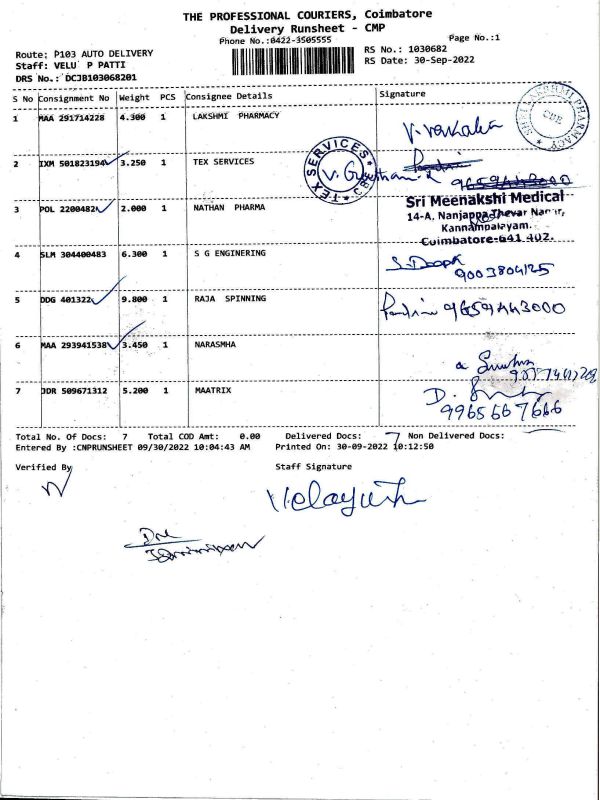 THE PROFESSIONAL COURIERS, Coimbatore
Delivery Runsheet - CMP
Phone No.:0422-3505555
Page No.:1
Route: P103 AUTO DELIVERY
RS No.: 1030682
Staff: VELU P PATTI
RS Date: 30-Sep-2022
DRS No.: DCJB103068201
S No Consignment No Weight PCS Consignee Details Signature
1 MAA 291714228 4.300 1 LAKSHMI PHARMACY
V. Venkatesh
SHREE LAKSHMI PHARMACY CBE
2 IXM 501823194 3.250 1 TEX SERVICES
TEX SERVICES CBE
V. Gowtham
9659443000
3 POL 2200482 2.000 1 NATHAN PHARMA
Sri Meenakshi Medical
14-A, Nanjappa Thevar Nagar,
Kannampalayam.
Coimbatore-641 402.
4 SLM 304400483 6.300 1 S G ENGINERING
S. Deepak
9003804125
5 DDG 401322 9.800 1 RAJA SPINNING
9659443000
6 MAA 293941538 3.450 1 NARASMHA
7 JDR 509671312 5.200 1 MAATRIX
D.
9965667666
Total No. Of Docs: 7 Total COD Amt: 0.00 Delivered Docs: 7 Non Delivered Docs:
Entered By :CNPRUNSHEET 09/30/2022 10:04:43 AM Printed On: 30-09-2022 10:12:50
Verified By Staff Signature